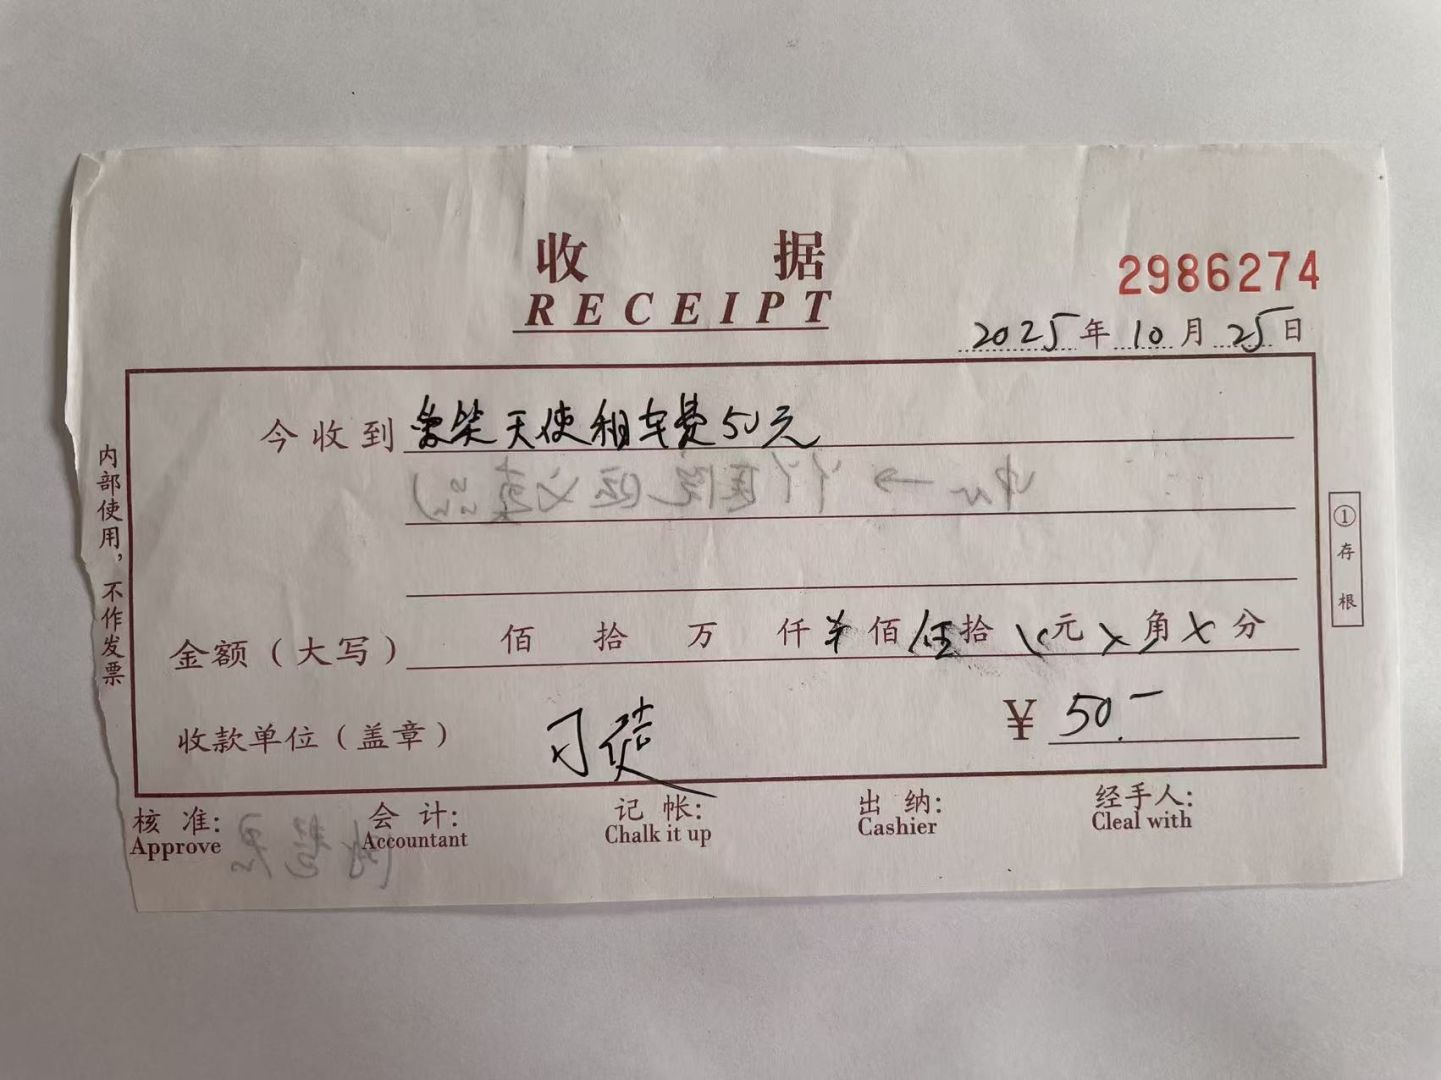 收 据
RECEIPT
2986274
2025年10月25日
今收到 天使租车费50元
金额（大写） 佰 拾 万 仟 佰 伍 拾 元 角 分
收款单位（盖章）
¥ 50.-
核 准: 会 计: 记 帐: 出 纳: 经手人:
Approve Accountant Chalk it up Cashier Cleal with
内部使用，不作发票
① 存根